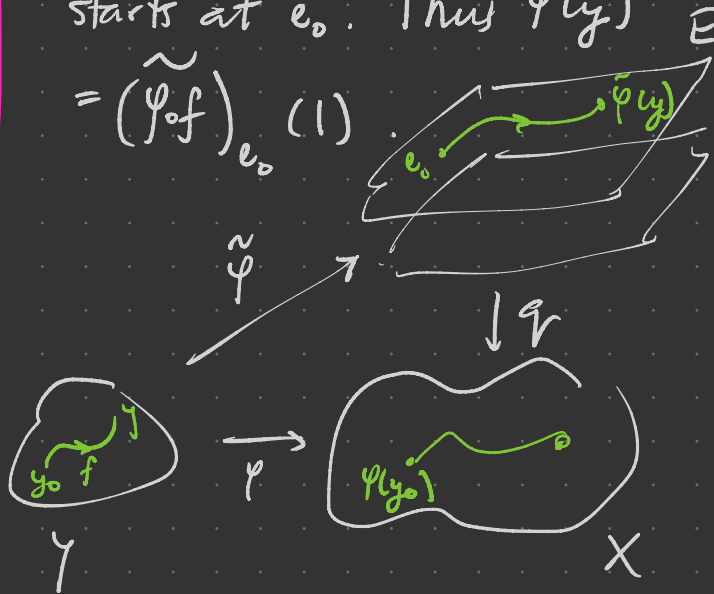 starts at e₀. Thus φ̃(y) E
= (φ∘f)~_{e₀} (1).
e₀ φ̃(y)
φ̃
q
y
y₀ f
φ
φ(y₀)
Y X